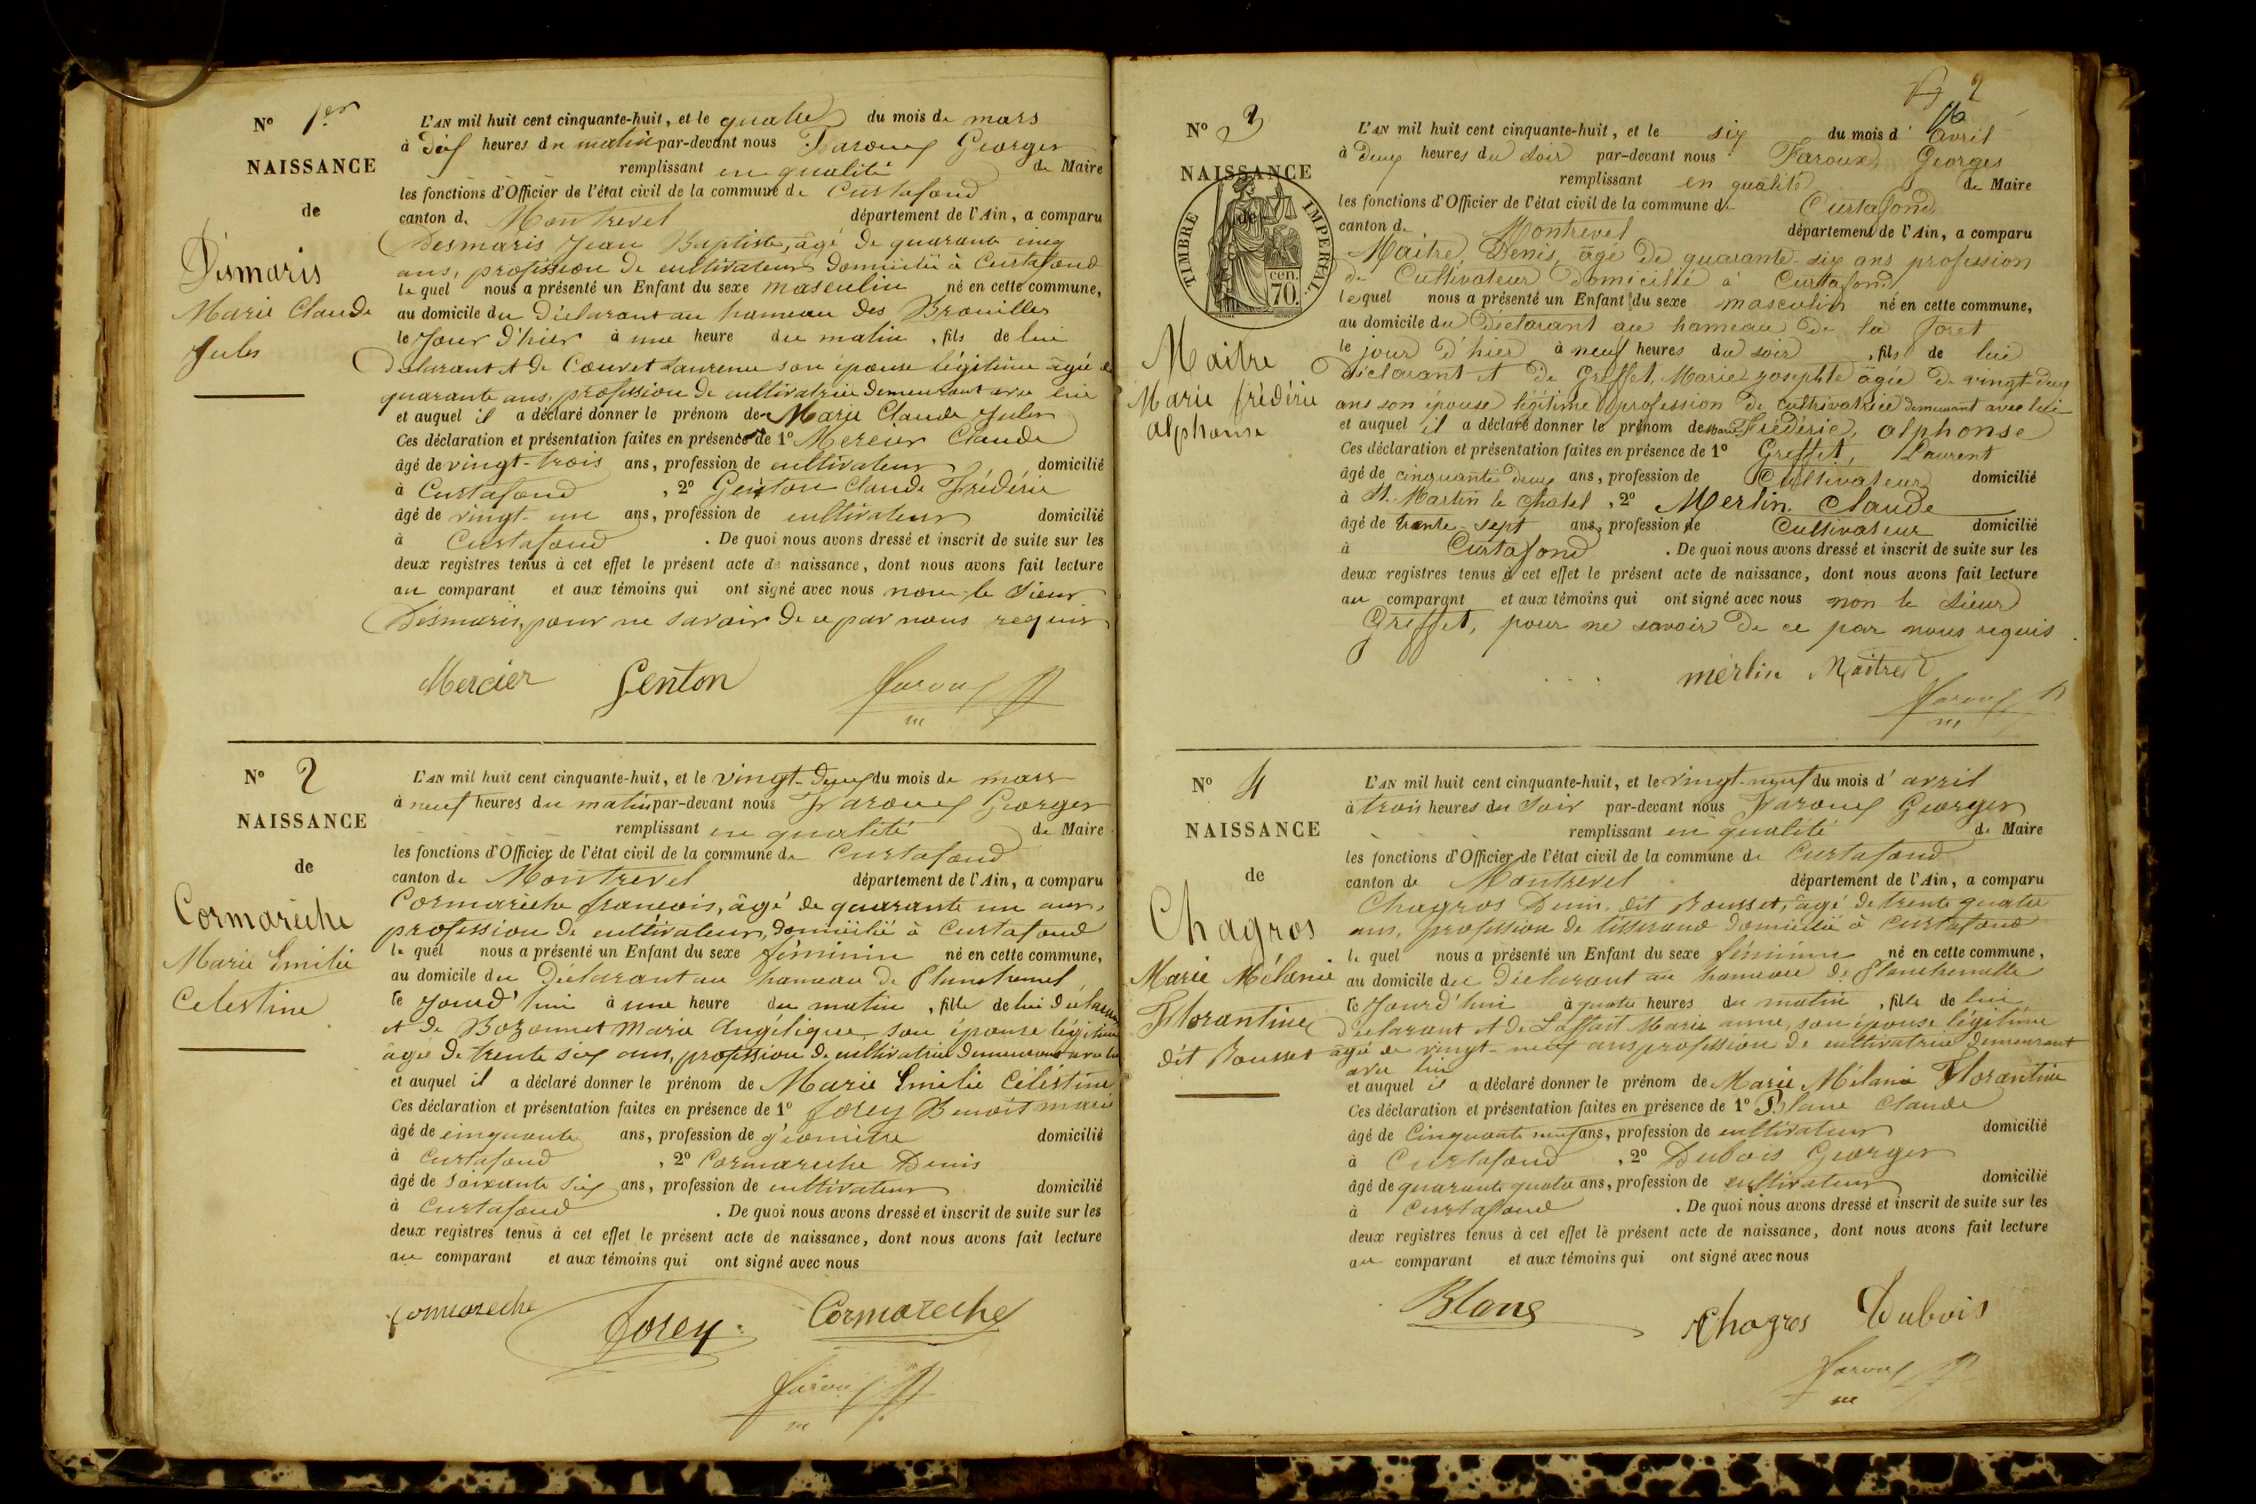 Nº 1er
NAISSANCE
de
Désmaris
Marie Claude
Jules
L'AN mil huit cent cinquante-huit, et le quatre du mois de mars
à dix heures du matin par-devant nous Faroux Georges
remplissant en qualité de Maire
les fonctions d'Officier de l'état civil de la commune de Curtafond
canton de Montrevel département de l'Ain, a comparu
Desmaris Jean Baptiste, âgé de quarante cinq
ans, profession de cultivateur domicilié à Curtafond
lequel nous a présenté un Enfant du sexe masculin né en cette commune,
au domicile du Déclarant au hameau des Brouilles
le jour d'hier à une heure du matin, fils de lui
Déclarant et de Couvet Laurence son épouse légitime âgée de
quarante ans, profession de cultivatrice demeurant avec lui
et auquel il a déclaré donner le prénom de Marie Claude Jules
Ces déclaration et présentation faites en présence de 1º Mercier Claude
âgé de vingt-trois ans, profession de cultivateur domicilié
à Curtafond, 2º Genton Claude Frédéric
âgé de vingt-un ans, profession de cultivateur domicilié
à Curtafond. De quoi nous avons dressé et inscrit de suite sur les
deux registres tenus à cet effet le présent acte de naissance, dont nous avons fait lecture
au comparant et aux témoins qui ont signé avec nous non le sieur
Désmaris, pour ne savoir de ce par nous requis
Mercier Genton Faroux
m
Nº 2
NAISSANCE
de
Cormarèche
Marie Emilie
Celestine
L'AN mil huit cent cinquante-huit, et le vingt-deux du mois de mars
à neuf heures du matin par-devant nous Faroux Georges
remplissant en qualité de Maire
les fonctions d'Officier de l'état civil de la commune de Curtafond
canton de Montrevel département de l'Ain, a comparu
Cormarèche francois, âgé de quarante un ans,
profession de cultivateur, domicilié à Curtafond
lequel nous a présenté un Enfant du sexe féminin né en cette commune,
au domicile du Déclarant au hameau de
le Jourd'hui à une heure du matin, fille de lui déclarant
et de Bozonnet Marie Angélique son épouse légitime
âgée de trente six ans, profession de cultivatrice demeurant avec lui
et auquel il a déclaré donner le prénom de Marie Emilie Céléstine
Ces déclaration et présentation faites en présence de 1º forey Benoît marie
âgé de cinquante ans, profession de géomètre domicilié
à Curtafond, 2º Cormareche Denis
âgé de soixante six ans, profession de cultivateur domicilié
à Curtafond. De quoi nous avons dressé et inscrit de suite sur les
deux registres tenus à cet effet le présent acte de naissance, dont nous avons fait lecture
au comparant et aux témoins qui ont signé avec nous
Cormareche Forey Cormareche
Faroux
m
2
Nº 3
NAISSANCE
de
TIMBRE IMPERIAL
cen.
70.
Maitre
Marie frédéric
alphonse
L'AN mil huit cent cinquante-huit, et le six du mois d'avril
à deux heures du soir par-devant nous Faroux, Georges
remplissant en qualité de Maire
les fonctions d'Officier de l'état civil de la commune de Curtafond
canton de Montrevel département de l'Ain, a comparu
Maitre, Denis, âgé de quarante-six ans profession
de Cultivateur domicilié à Curtafond
lequel nous a présenté un Enfant du sexe masculin né en cette commune,
au domicile du Déclarant au hameau de la foret
le jour d'hier à neuf heures du soir, fils de lui
déclarant et de Greffet, Marie josephte âgée de vingt-deux
ans son épouse légitime profession de cultrivatrice demeurant avec lui
et auquel il a déclaré donner le prénom de Marie Frédéric, alphonse
Ces déclaration et présentation faites en présence de 1º Greffet, Laurent
âgé de cinquante deux ans, profession de Cultivateur domicilié
à St. Martin le Chatel, 2º Merlin. Claude
âgé de trente-sept ans, profession de Cultivateur domicilié
à Curtafond. De quoi nous avons dressé et inscrit de suite sur les
deux registres tenus à cet effet le présent acte de naissance, dont nous avons fait lecture
au comparant et aux témoins qui ont signé avec nous non le sieur
Greffet, pour ne savoir de ce par nous requis.
merlin Maitre
Faroux
m
Nº 4
NAISSANCE
de
Chagros
Marie Mélanie
Florantine
dit Rousset
L'AN mil huit cent cinquante-huit, et le vingt-neuf du mois d'avril
à trois heures du soir par-devant nous Faroux Georges
remplissant en qualité de Maire
les fonctions d'Officier de l'état civil de la commune de Curtafond
canton de Montrevel département de l'Ain, a comparu
Chagros Denis dit Rousset, âgé de trente quatre
ans, profession de tisserand domicilié à Curtafond
lequel nous a présenté un Enfant du sexe féminin né en cette commune,
au domicile du Déclarant au hameau de
le Jourd'hui à quatre heures du matin, fille de lui
déclarant et de Marie anne, son épouse légitime
âgée de vingt-neuf ans profession de cultivatrice demeurant
avec lui
et auquel il a déclaré donner le prénom de Marie Mélanie Florantine
Ces déclaration et présentation faites en présence de 1º Blanc Claude
âgé de Cinquante neuf ans, profession de cultivateur domicilié
à Curtafond, 2º Dubois Georges
âgé de quarante quatre ans, profession de cultivateur domicilié
à Curtafond. De quoi nous avons dressé et inscrit de suite sur les
deux registres tenus à cet effet le présent acte de naissance, dont nous avons fait lecture
au comparant et aux témoins qui ont signé avec nous
Blanc Chagros Dubois
Faroux
m